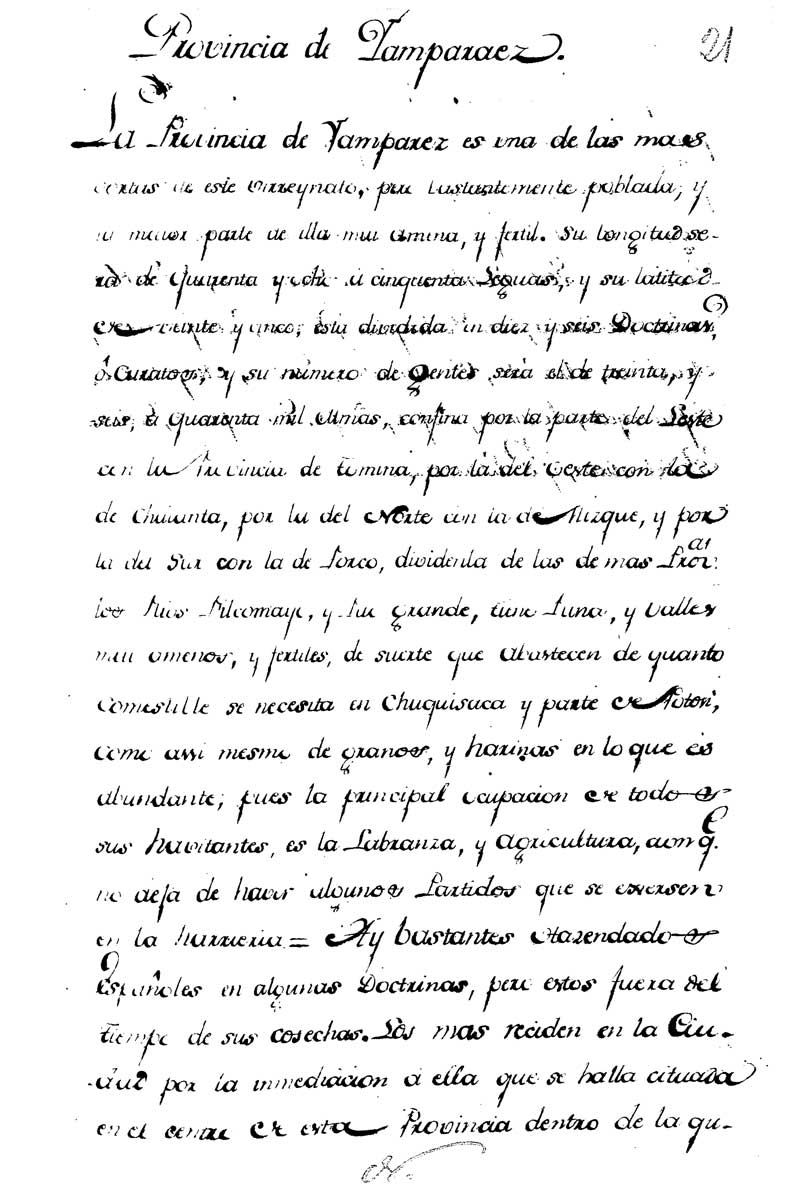 Provincia de Yamparaez.
21
La Provincia de Yamparez es una de las maes
cortas de este Virreynato, pero bastantemente poblada, y
la maior parte de ella mui amena, y fertil. Su longitud se-
rá de Quarenta y ocho á cinquenta Leguas, y su latitud
de veinte y cinco, está dividida en diez y seis Doctrinas,
ó Curatos, y su número de gentes será el de treinta, y
seis, á Quarenta mil Almas, confina por la parte del Leste
con la Provincia de Tomina, por la del Oeste con la
de Chaianta, por la del Norte con la de Mizque, y por
la del Sur con la de Porco, dividenla de las demas Prov.as
los Rios Pilcomayo, y Rio grande, tiene Puna, y Valles
mui amenos, y fertiles, de suerte que abastecen de quanto
comestible se necesita en Chuquisaca y parte de Potosi,
como assi mesmo de granos, y harinas en lo que es
abundante; pues la principal ocupacion de todos
sus havitantes, es la Labranza, y Agricultura, aunq.e
no deja de haver algunos Partidos que se exersen
en la harrieria = Ay bastantes Hazendados
Españoles en algunas Doctrinas, pero estos fuera del
tiempo de sus cosechas. Los mas reciden en la Ciu-
dad por la inmediacion á ella que se halla cituada
en el centro de esta Provincia dentro de la qu-